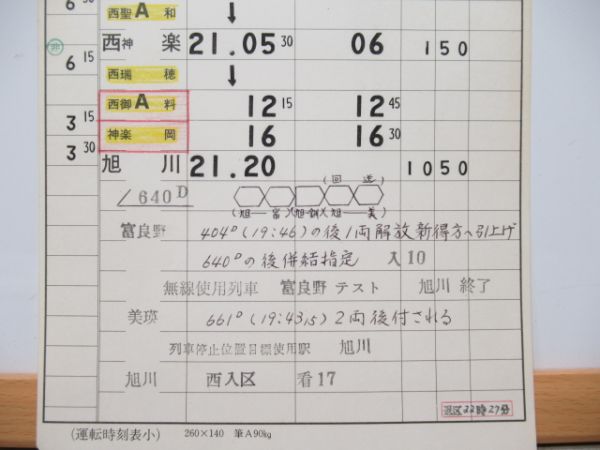 6 30 西聖 A 和 ↓
西神楽 21.05 30 06 150
非
6 15 西瑞穂 ↓
西御 A 料 12 15 12 45
3 15 神楽岡 16 16 30
3 30 旭川 21.20 1050
640D (回送)
(旭—富)(旭-釧)(旭—美)
富良野 404D (19:46)の後1両解放新得方へ引上げ
640Dの後併結指定 入10
無線使用列車 富良野 テスト 旭川 終了
美瑛 661D (19:43 15) 2両後付される
列車停止位置目標使用駅 旭川
旭川 西入区 看17
退区22時27分
(運転時刻表小) 260×140 筆A90kg